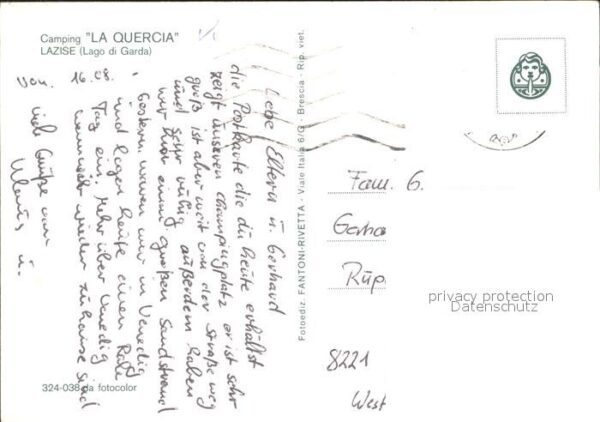 Camping "LA QUERCIA"
LAZISE (Lago di Garda)
Von. 16.08.
Liebe Eltern u. Gerhard
die Postkarte die du heute erhälst
zeigt unseren Campingplatz er ist sehr
groß ist aber weit von der Straße weg
und sehr ruhig außerdem haben
wir hier einen großen Sandstrand
Gestern waren wir in Venedig
und legen heute einen Ruhe
Tag ein. Mehr über Venedig
wenn wir wieder zuhause sind
viele Grüße von
Fotoediz. FANTONI-RIVETTA - Viale Italia 6/G - Brescia - Rip. viet.
Fam. G.
Gerha
Rup
8221
West
privacy protection
Datenschutz
324-038 da fotocolor